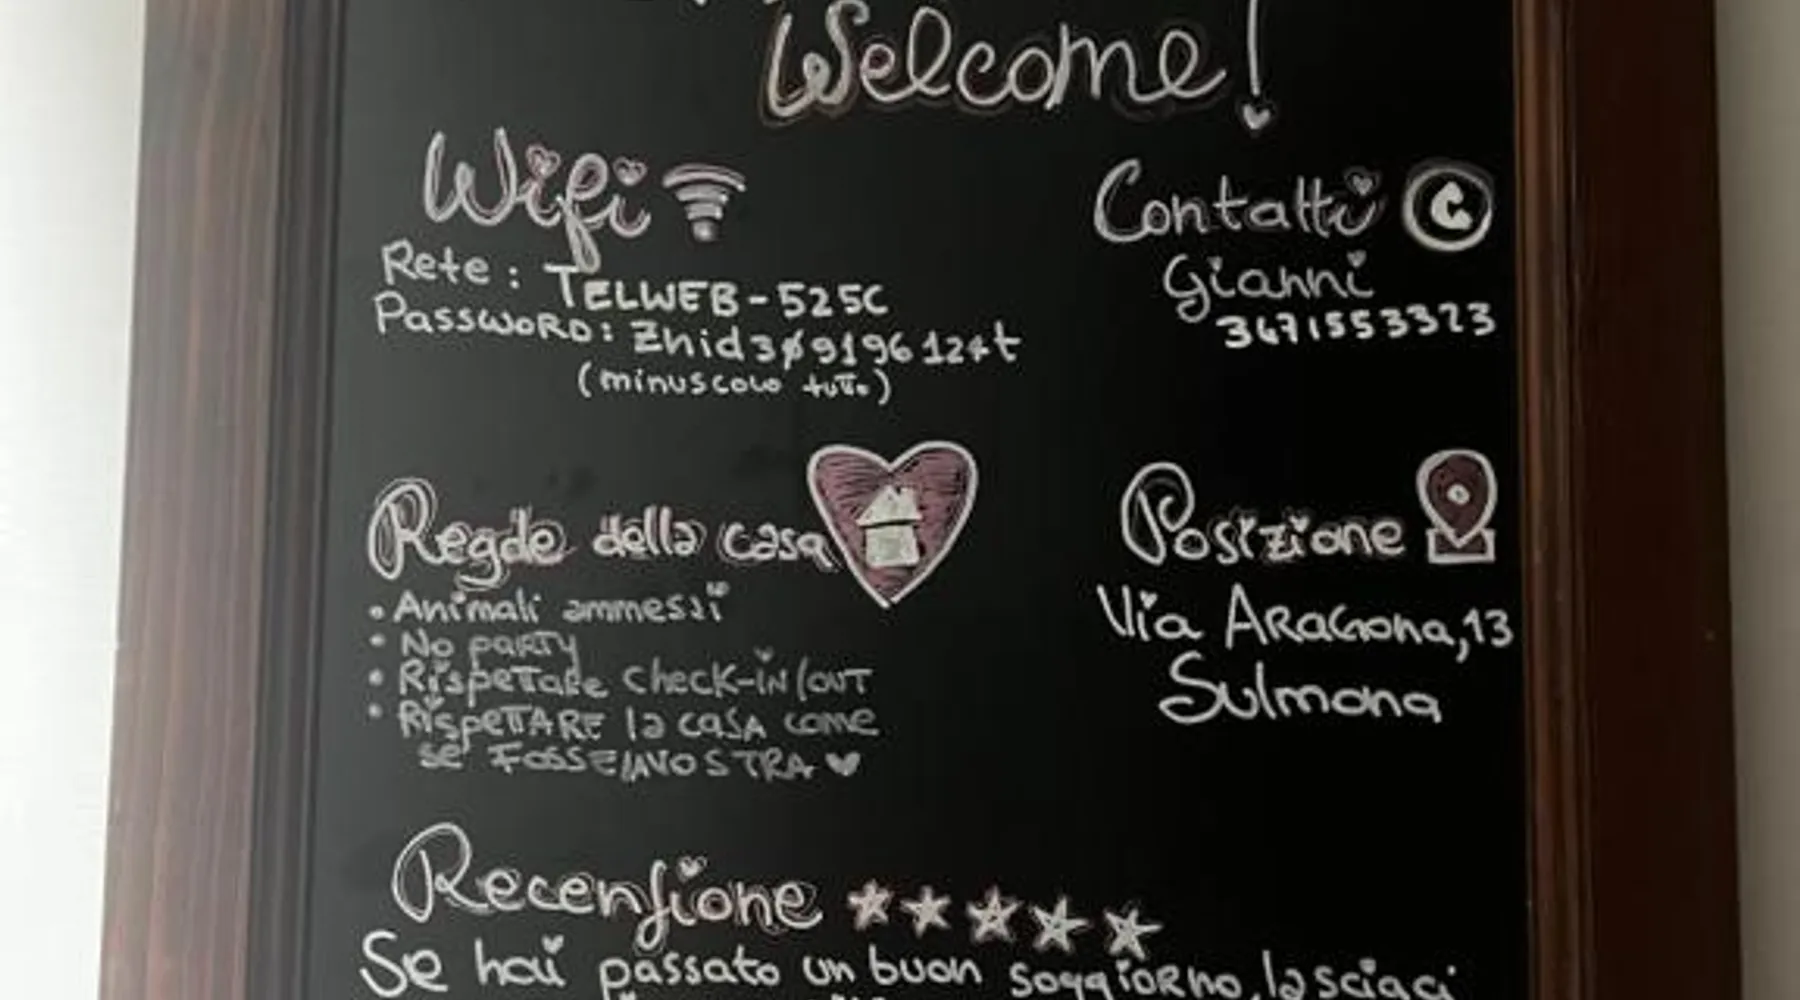 Welcome!
Wifi
Rete: TELWEB-525C
Password: Zhid309196124t
(minuscolo tutto)
Contatti
Gianni
3471553323
Regole della casa
• Animali ammessi
• No party
• Rispettare check-in/out
• Rispettare la casa come
se fosse la vostra
Posizione
Via Aragona, 13
Sulmona
Recensione
Se hai passato un buon soggiorno, lasciaci